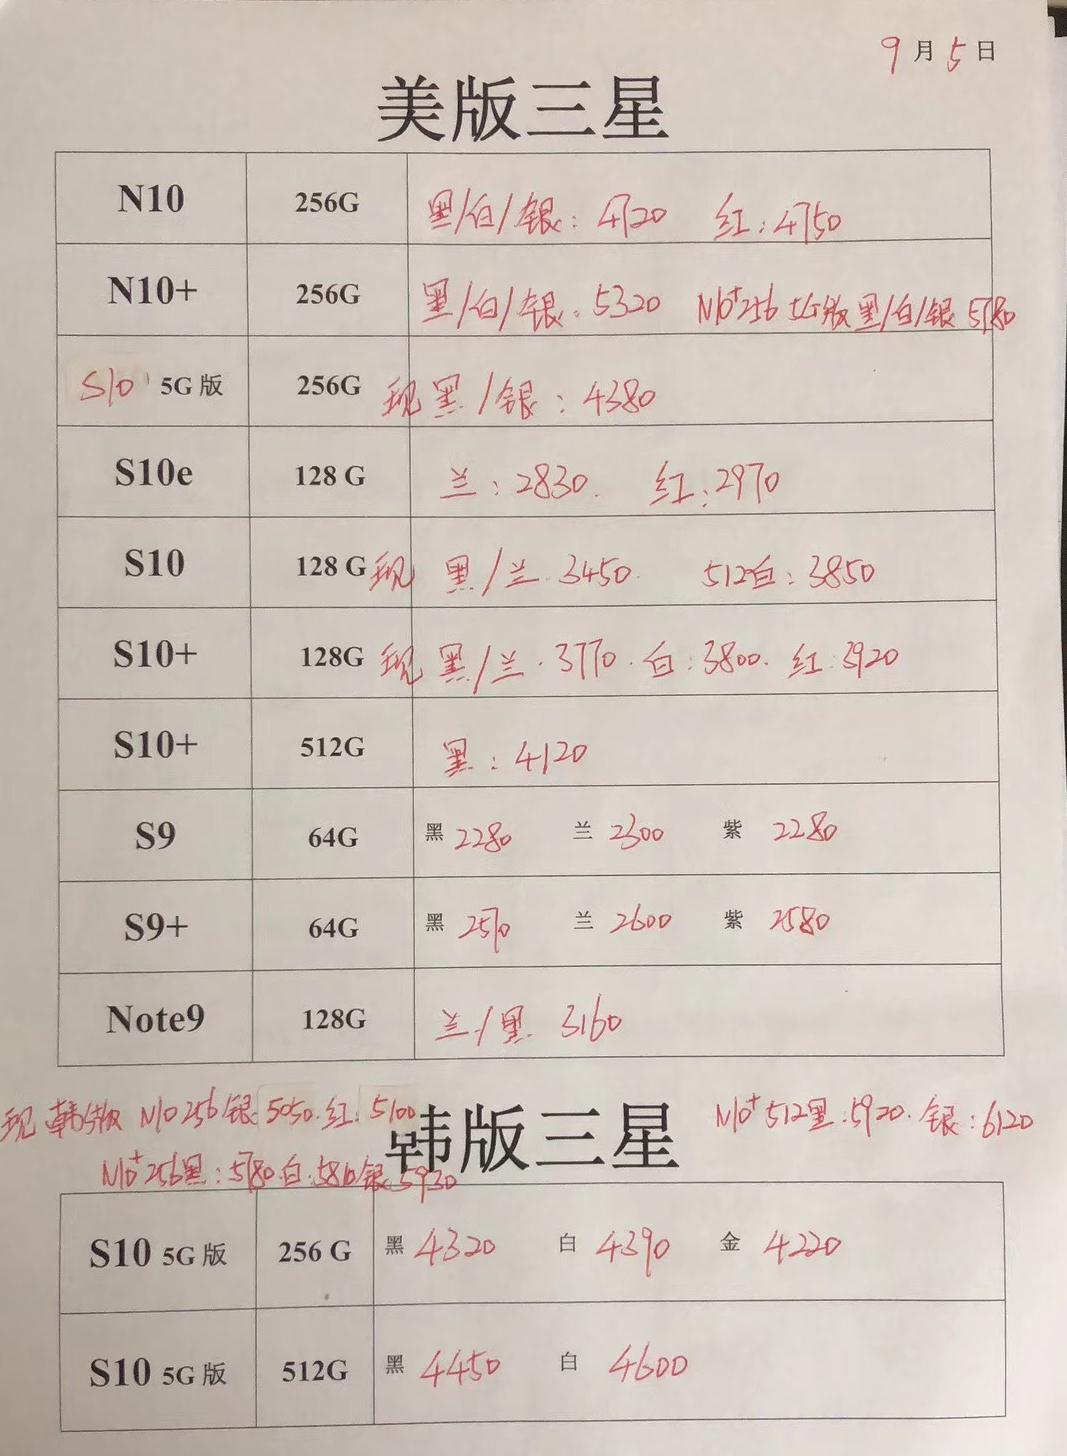 9月5日
美版三星
N10 256G 黑/白/银:4720 红:4750
N10+ 256G 黑/白/银:5320 N10+256 5G版 黑/白/银 5780
S10 5G版 256G 现 黑/银:4380
S10e 128 G 兰:2830. 红:2970
S10 128 G 现 黑/兰.3450. 512白:3850
S10+ 128G 现 黑/兰.3770.白:3800.红:3920
S10+ 512G 黑:4120
S9 64G 黑 2280 兰 2300 紫 2280
S9+ 64G 黑 2570 兰 2600 紫 2580
Note9 128G 兰/黑 3160
现 韩版 N10 256/银:5050.红:5100
N10+512黑:5920.银:6120
韩版三星
N10+256黑:5780.白:5810银5930
S10 5G版 256 G 黑 4320 白 4390 金 4220
S10 5G版 512G 黑 4450 白 4600